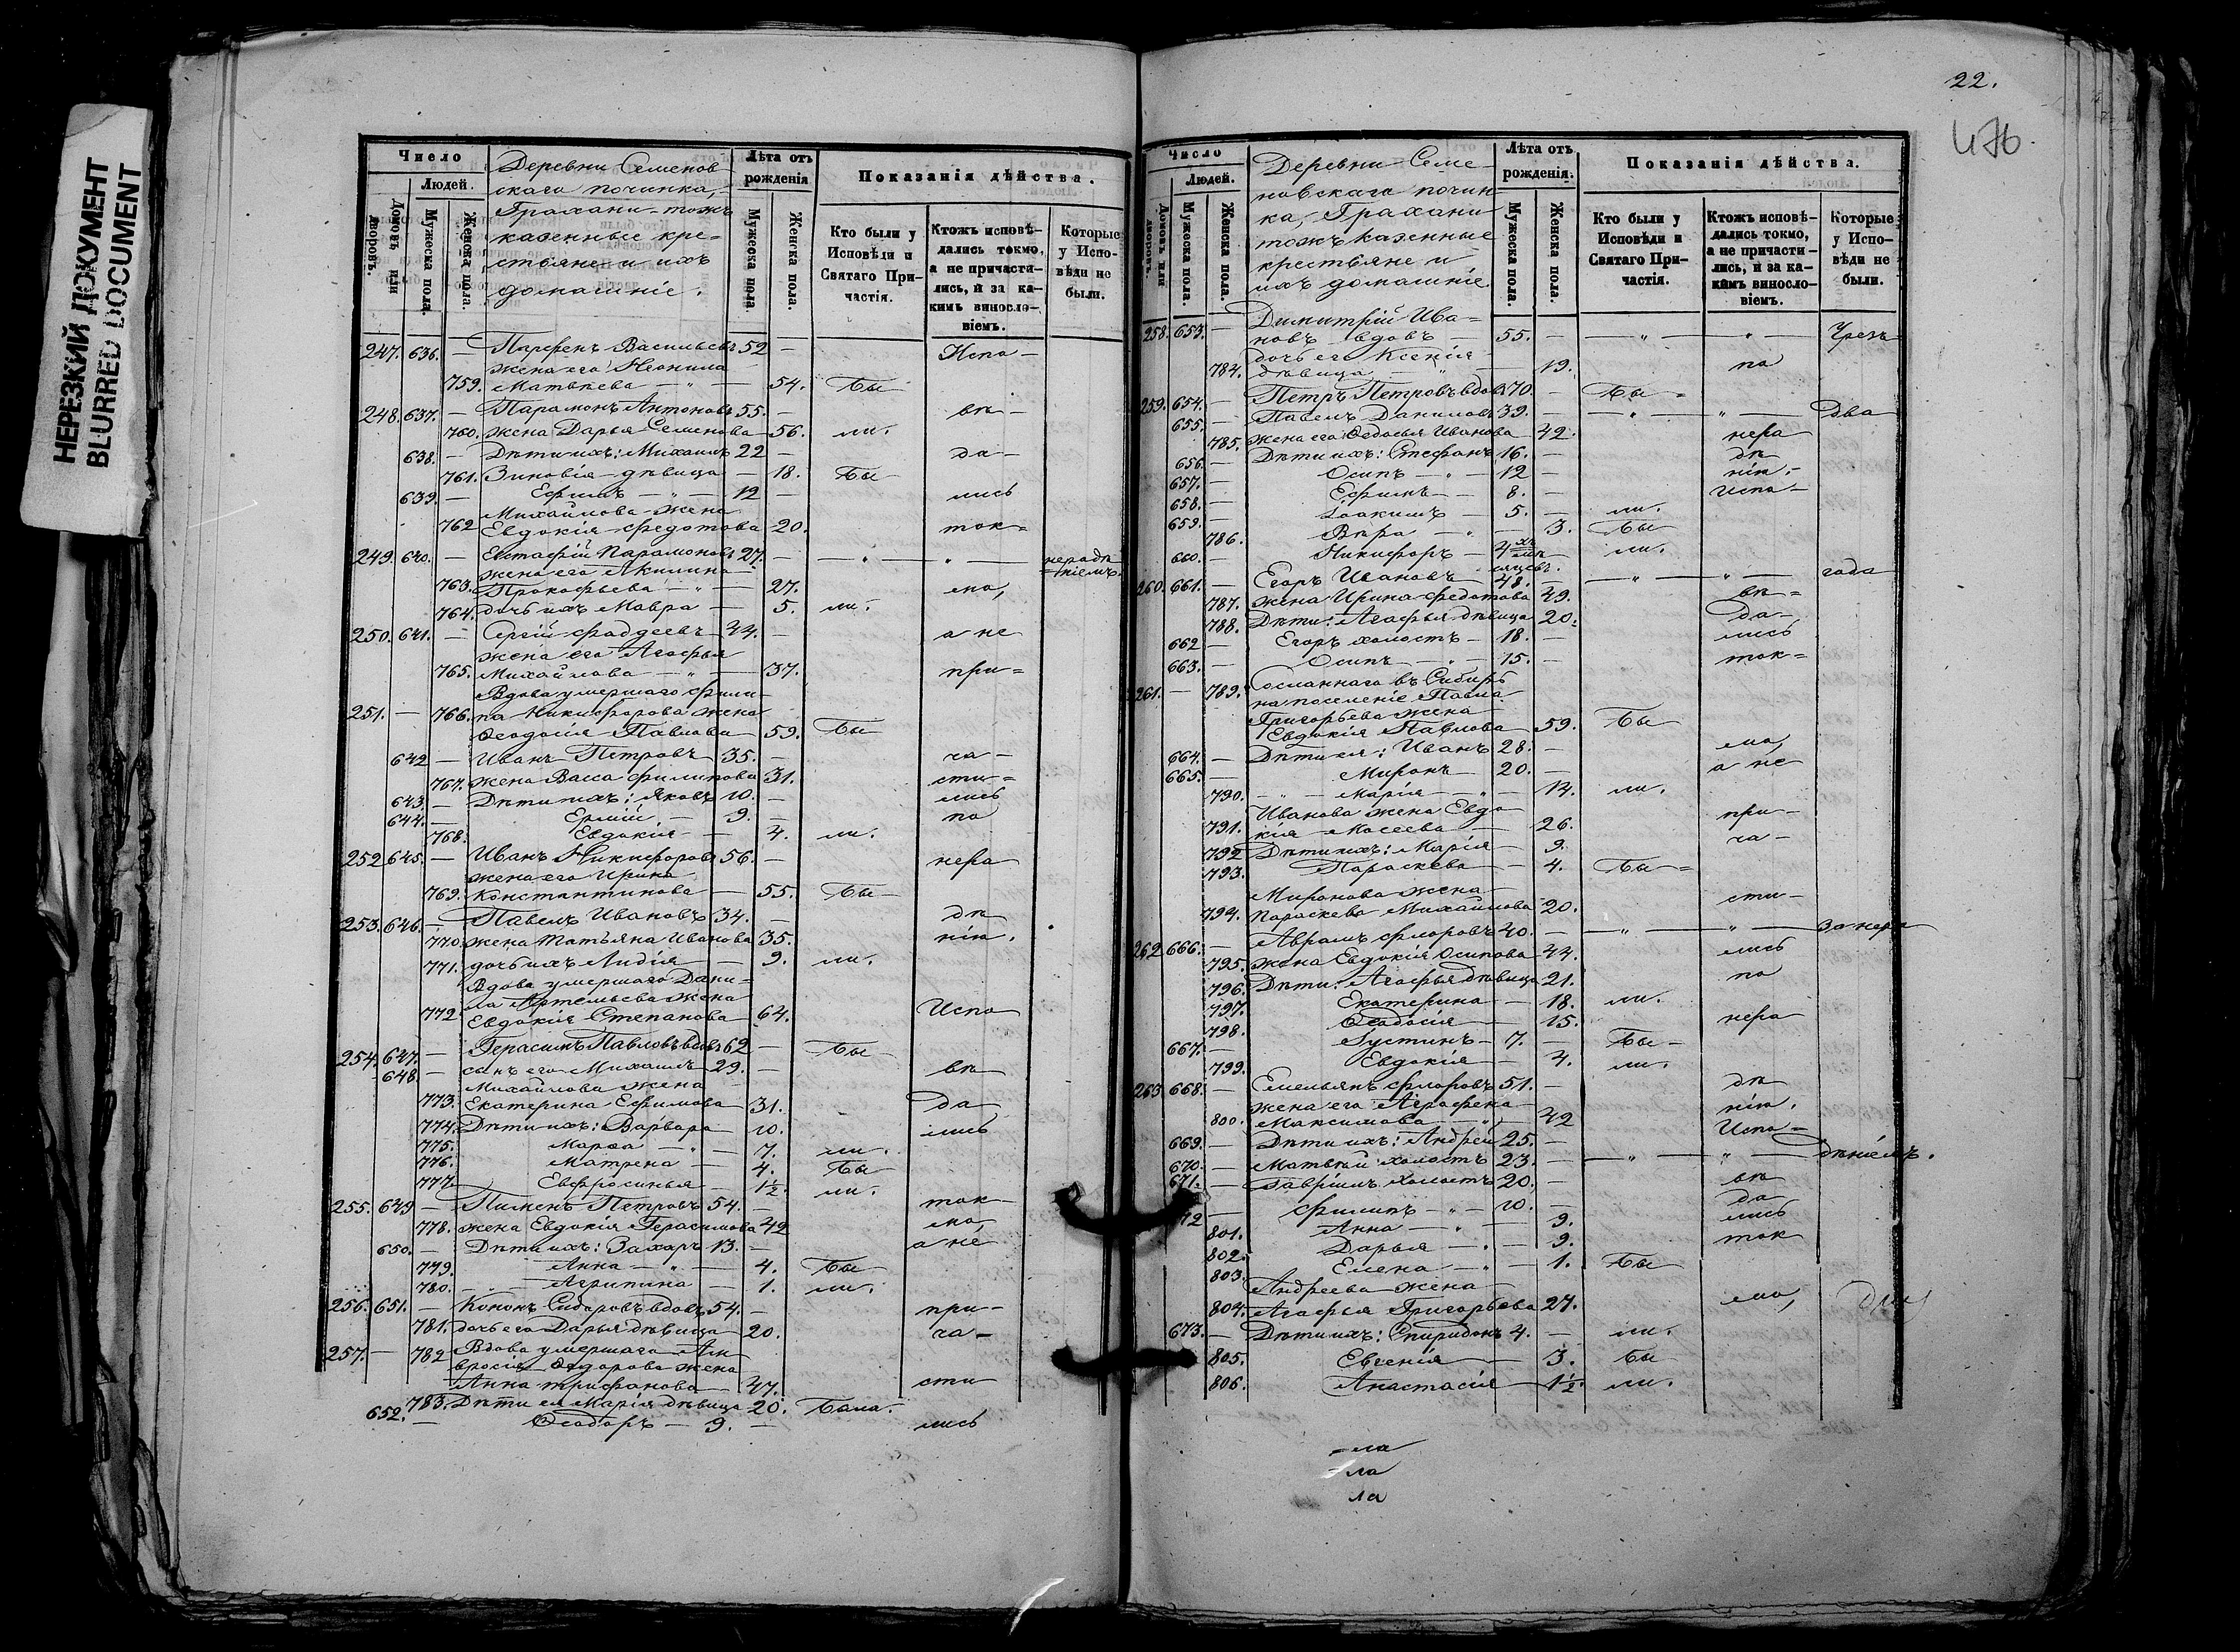 НЕРЕЗКИЙ ДОКУМЕНТ
BLURRED DOCUMENT
Число
Людей.
Домовъ или дворовъ.
Мужеска пола.
Женска пола.
Деревни Семенов
скаго починка,
Грахани-тожъ
казенные кре=
стьяне и ихъ
домашніе.
Лѣта отъ рожденія
Мужеска пола
Женска пола.
Показанія дѣйства.
Кто были у Исповѣди и Святаго Причастія.
Ктожъ исповѣдались токмо, а не причастились, и за какимъ винословіемъ.
Которые у Исповѣди не были.
247. 636. — Парфенъ Васильевъ 52 — Испо-
жена его Неонила
759. Матвѣева — 54. бы
248. 637. — Парамонъ Антоновъ 55. — вѣ-
760. жена Дарья Семенова 56. ли.
638. — Дѣти ихъ: Михаилъ 22 — да-
761. Зиновія дѣвица — 18. бы
639. — Ефимъ — " — 12 — лись
Михайлова жена
762 Евдокія Федотова 20. ток=
249. 640. — Евстафій Парамоновъ 27. — " — " — нерадѣ
жена его Акилина =ніемъ.
763. Прокофьева — " — 27. мо,
764. дочь ихъ Мавра — 5. ли.
250. 641. — Сергій Фаддеевъ 44. — а не
жена его Агафья
765. Михайлова — " — 37. при=
Вдова умершаго Фили-
251. — 766. па Никифорова жена
Ѳеодосія Павлова 59. бы
642 — Иванъ Петровъ 35. — ча-
767. жена Васса Филипова 31. сти=
643. — Дѣти ихъ: Яковъ 10. — лись
644. — Ермій — 9. — по
768. Евдокія — 4. ли.
252 645. — Иванъ Никифоровъ 56. — нера
жена его Ирина
769. Константинова — 55. бы
253. 646. — Павелъ Ивановъ 34. — дѣ
770. жена Татьяна Иванова 35. нію.
771. дочь ихъ Лидія — 9. ли.
Вдова умершаго Дани-
ла Артемьева жена
772. Евдокія Степанова 64. Испо
254. 647. — Герасимъ Павловъ вдовъ 62 — бы
648. — сынъ его Михаилъ 29. — вѣ
Михайлова жена
773. Екатерина Ефимова 31. да
774. Дѣти ихъ: Варвара 10. лись
775. Марѳа — " — 7. ли.
776. Матрена — 4. бы
777. Евфросинья — 1½. ли.
255. 649 — Пименъ Петровъ 54. — ток-
778. жена Евдокія Герасимова 42 мо,
650. — Дѣти ихъ: Захаръ 13. — а не
779. Анна — " — 4. бы
780. Агрипина — 1. ли.
256. 651. — Кононъ Сидоровъ вдовъ 54. — при-
781. дочь его Дарья дѣвица 20. ча-
257. — 782 Вдова умершаго Ам
вросія Ѳедорова жена
Анна Трифонова 47. сти
783. Дѣти ея Марія дѣвица 20. была.
652. — Ѳеодоръ — 9. — лись
22.
476
Число
Людей.
Домовъ или дворовъ.
Мужеска пола.
Женска пола.
Деревни Семе-
новскаго почин
ка, Грахани
тожъ казенные
крестьяне и
ихъ домашніе
Лѣта отъ рожденія.
Мужеска пола.
Женска пола.
Показанія дѣйства.
Кто были у Исповѣди и Святаго Причастія.
Ктожъ исповѣдались токмо, а не причастились, и за какимъ винословіемъ.
Которые у Исповѣди не были.
258. 653. — Димитрій Ива=
новъ вдовъ — 55. — " — " — Чрезъ
дочь его Ксенія
784. дѣвица — " — 19. по
259. 654. — Петръ Петровъ вдовъ 70. — бы=
655. — Павелъ Даниловъ 39. — " — " — два
785. жена его Ѳедосья Иванова 42. нера
656. — Дѣти ихъ: Стефанъ 16. — дѣ
657. — Осипъ — " — 12 — нію.-
658. — Ефимъ — 8. — Испо-
659. — Іоакимъ — 5. — ли.
786. Вѣра — " — 3. бы
660. — Никифоръ — 4хъ мѣсяцевъ. ли.
260. 661. — Егоръ Ивановъ — 48. — " — " — года
787. жена Ирина Федотова 49. вѣ=
788. Дѣти: Агафья дѣвица 20. да-
662 — Егоръ холостъ — 18. — лись
663. — Осипъ — " — 15. — ток=
261. — 789. Сосланнаго въ Сибирь
на поселеніе Павла
Григорьева жена
Евдокія Павлова 59. бы
664. — Дѣти ея: Иванъ 28. — мо,
665. — Миронъ — 20. — а не
790. — Марія — " — 14. ли.
Иванова жена Евдо
791. кія Мосеева — 26. при-
792 Дѣти ихъ: Марія — 9. ча-
793. Параскева — 4. бы=
Миронова жена
794. Параскева Михайлова 20. сти-
262 666. — Аврамъ Флоровъ 40. — " — " — за нера
795. жена Евдокія Осипова 44. лись
796. Дѣти: Агафья дѣвица 21. по
797. Екатерина — 18. ли.
798. Ѳеодосія — 15. нера
667. — Іустинъ — 7. — бы-
799. Евдокія — 4. ли.
263 668. — Емельянъ Флоровъ 51. — дѣ
жена его Аграфена нію.
800. Максимова — " — 42 Испо=
669. — Дѣти ихъ: Андрей 25. —
670. — Матвѣй холостъ 23. — " — " — дѣніемъ.
671. — Гавріилъ холостъ 20. — вѣ
72 — Филипъ — " — 10. — да
801. Анна — " — 9. лись
802. Дарья — " — 9. ток
803. Елена — " — 1. бы
Андреева жена
804. Агафья Григорьева 27. мо,
673. — Дѣти ихъ: Спиридонъ 4. — ли.
805. Евгенія — 3. бы
806. Анастасія — 1½. ли.
-ла
-ла
ла